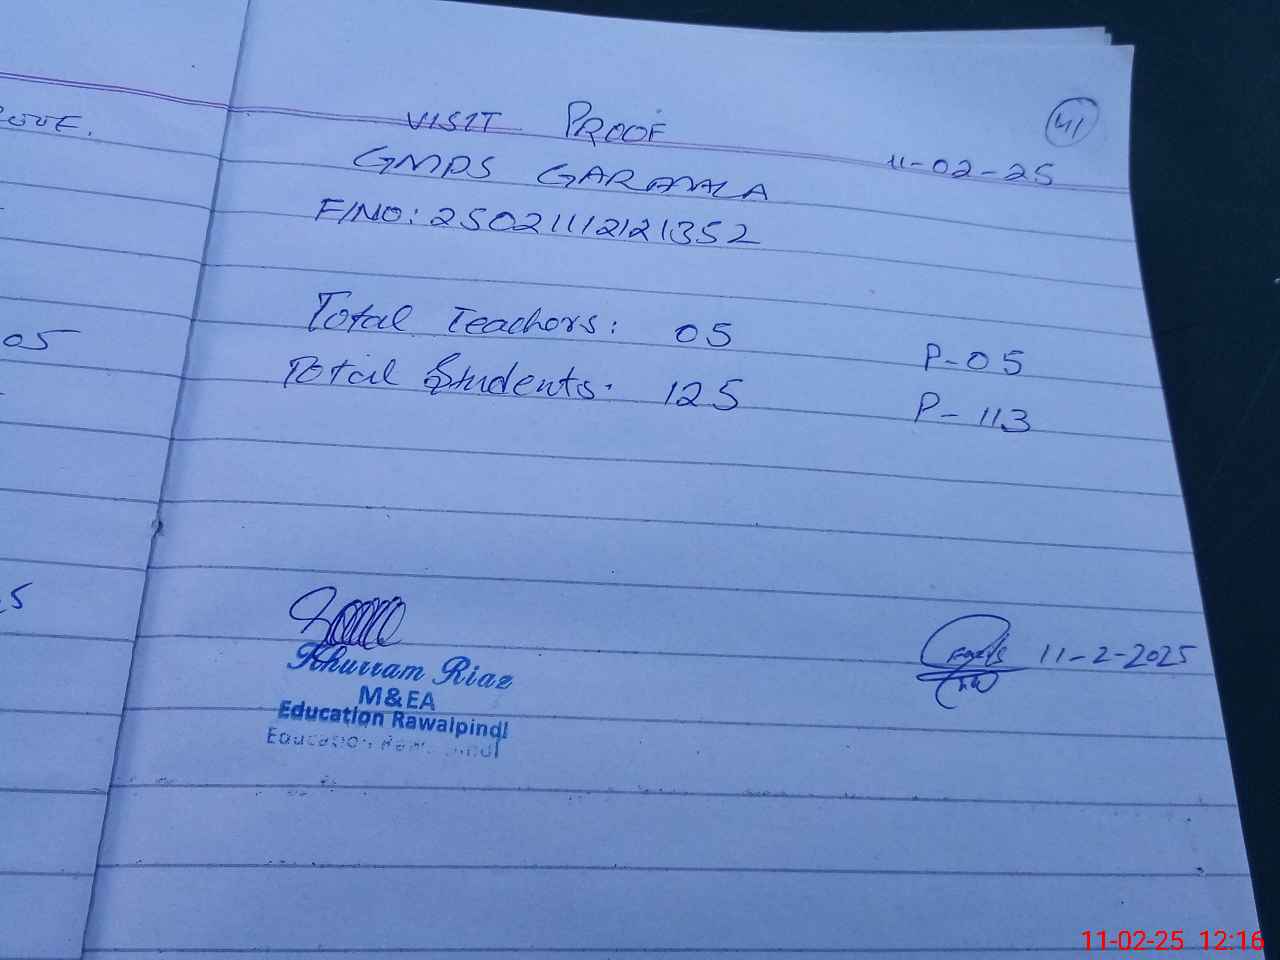 05
VISIT PROOF
41
11-02-25
GMPS GARAWALA
F/NO: 25021112121352
Total Teachers: 05 P-05
Total Students: 125 P-113
Khurram Riaz
M&EA
Education Rawalpindi
11-2-2025
11-02-25 12:16